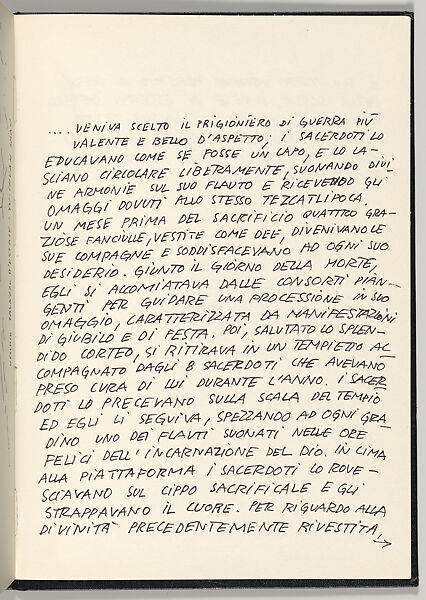 .... VENIVA SCELTO IL PRIGIONIERO DI GUERRA PIÙ
VALENTE E BELLO D'ASPETTO; I SACERDOTI LO
EDUCAVANO COME SE FOSSE UN CAPO, E LO LA-
SCIANO CIRCOLARE LIBERAMENTE, SUONANDO DIVI-
NE ARMONIE SUL SUO FLAUTO E RICEVENDO GLI
OMAGGI DOVUTI ALLO STESSO TEZCATLIPOCA.
UN MESE PRIMA DEL SACRIFICIO QUATTRO GRA-
ZIOSE FANCIULLE, VESTITE COME DEE, DIVENIVANO LE
SUE COMPAGNE E SODDISFACEVANO AD OGNI SUO
DESIDERIO. GIUNTO IL GIORNO DELLA MORTE,
EGLI SI ACCOMIATAVA DALLE CONSORTI PIAN-
GENTI PER GUIDARE UNA PROCESSIONE IN SUO
OMAGGIO, CARATTERIZZATA DA MANIFESTAZIONI
DI GIUBILO E DI FESTA. POI, SALUTATO LO SPLEN-
DIDO CORTEO, SI RITIRAVA IN UN TEMPIETTO AC-
COMPAGNATO DAGLI 8 SACERDOTI CHE AVEVANO
PRESO CURA DI LUI DURANTE L'ANNO. I SACER-
DOTI LO PRECEVANO SULLA SCALA DEL TEMPIO
ED EGLI LI SEGUIVA, SPEZZANDO AD OGNI GRA-
DINO UNO DEI FLAUTI SUONATI NELLE ORE
FELICI DELL'INCARNAZIONE DEL DIO. IN CIMA
ALLA PIATTAFORMA I SACERDOTI LO ROVE-
SCIAVANO SUL CIPPO SACRIFICALE E GLI
STRAPPAVANO IL CUORE. PER RIGUARDO ALLA
DIVINITÀ PRECEDENTEMENTE RIVESTITA, →